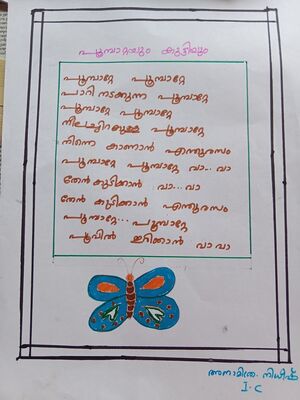 പൂമ്പാറ്റയും കുട്ടിയും
പൂമ്പാറ്റേ പൂമ്പാറ്റേ
പാറി നടക്കുന്ന പൂമ്പാറ്റേ
പൂമ്പാറ്റേ പൂമ്പാറ്റേ
നീലച്ചിറകുള്ള പൂമ്പാറ്റേ
നിന്നെ കാണാൻ എന്തുരസം
പൂമ്പാറ്റേ പൂമ്പാറ്റേ വാ.. വാ
തേൻ കുടിക്കാൻ വാ... വാ
തേൻ കുടിക്കാൻ എന്തുരസം
പൂമ്പാറ്റേ... പൂമ്പാറ്റേ
പൂവിൽ ഇരിക്കാൻ വാ വാ
അനാമിത്ര. നിധീഷ്
I. C